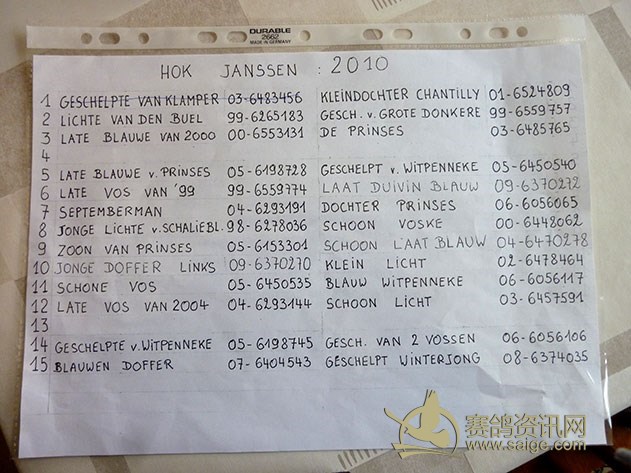 DURABLE
2662
MADE IN GERMANY
HOK JANSSEN : 2010
1 GESCHELPTE VAN KLAMPER 03-6483456 KLEINDOCHTER CHANTILLY 01-6524809
2 LICHTE VAN DEN BUEL 99-6265183 GESCH. v. GROTE DONKERE 99-6559757
3 LATE BLAUWE VAN 2000 00-6553131 DE PRINSES 03-6485765
4
5 LATE BLAUWE v. PRINSES 05-6198728 GESCHELPT v. WITPENNEKE 05-6450540
6 LATE VOS VAN '99 99-6559774 LAAT DUIVIN BLAUW 09-6370272
7 SEPTEMBERMAN 04-6293191 DOCHTER PRINSES 06-6056065
8 JONGE LICHTE v. SCHALIEBL. 98-6278036 SCHOON VOSKE 00-6448062
9 ZOON VAN PRINSES 05-6153301 SCHOON LAAT BLAUW 04-6470278
10 JONGE DOFFER LINKS 09-6370270 KLEIN LICHT 02-6478464
11 SCHONE VOS 05-6450535 BLAUW WITPENNEKE 06-6056117
12 LATE VOS VAN 2004 04-6293144 SCHOON LICHT 03-6457591
13
14 GESCHELPTE v. WITPENNEKE 05-6198745 GESCH. VAN 2 VOSSEN 06-6056106
15 BLAUWEN DOFFER 07-6404543 GESCHELPT WINTERJONG 08-6374035
赛鸽资讯网
www.saige.com